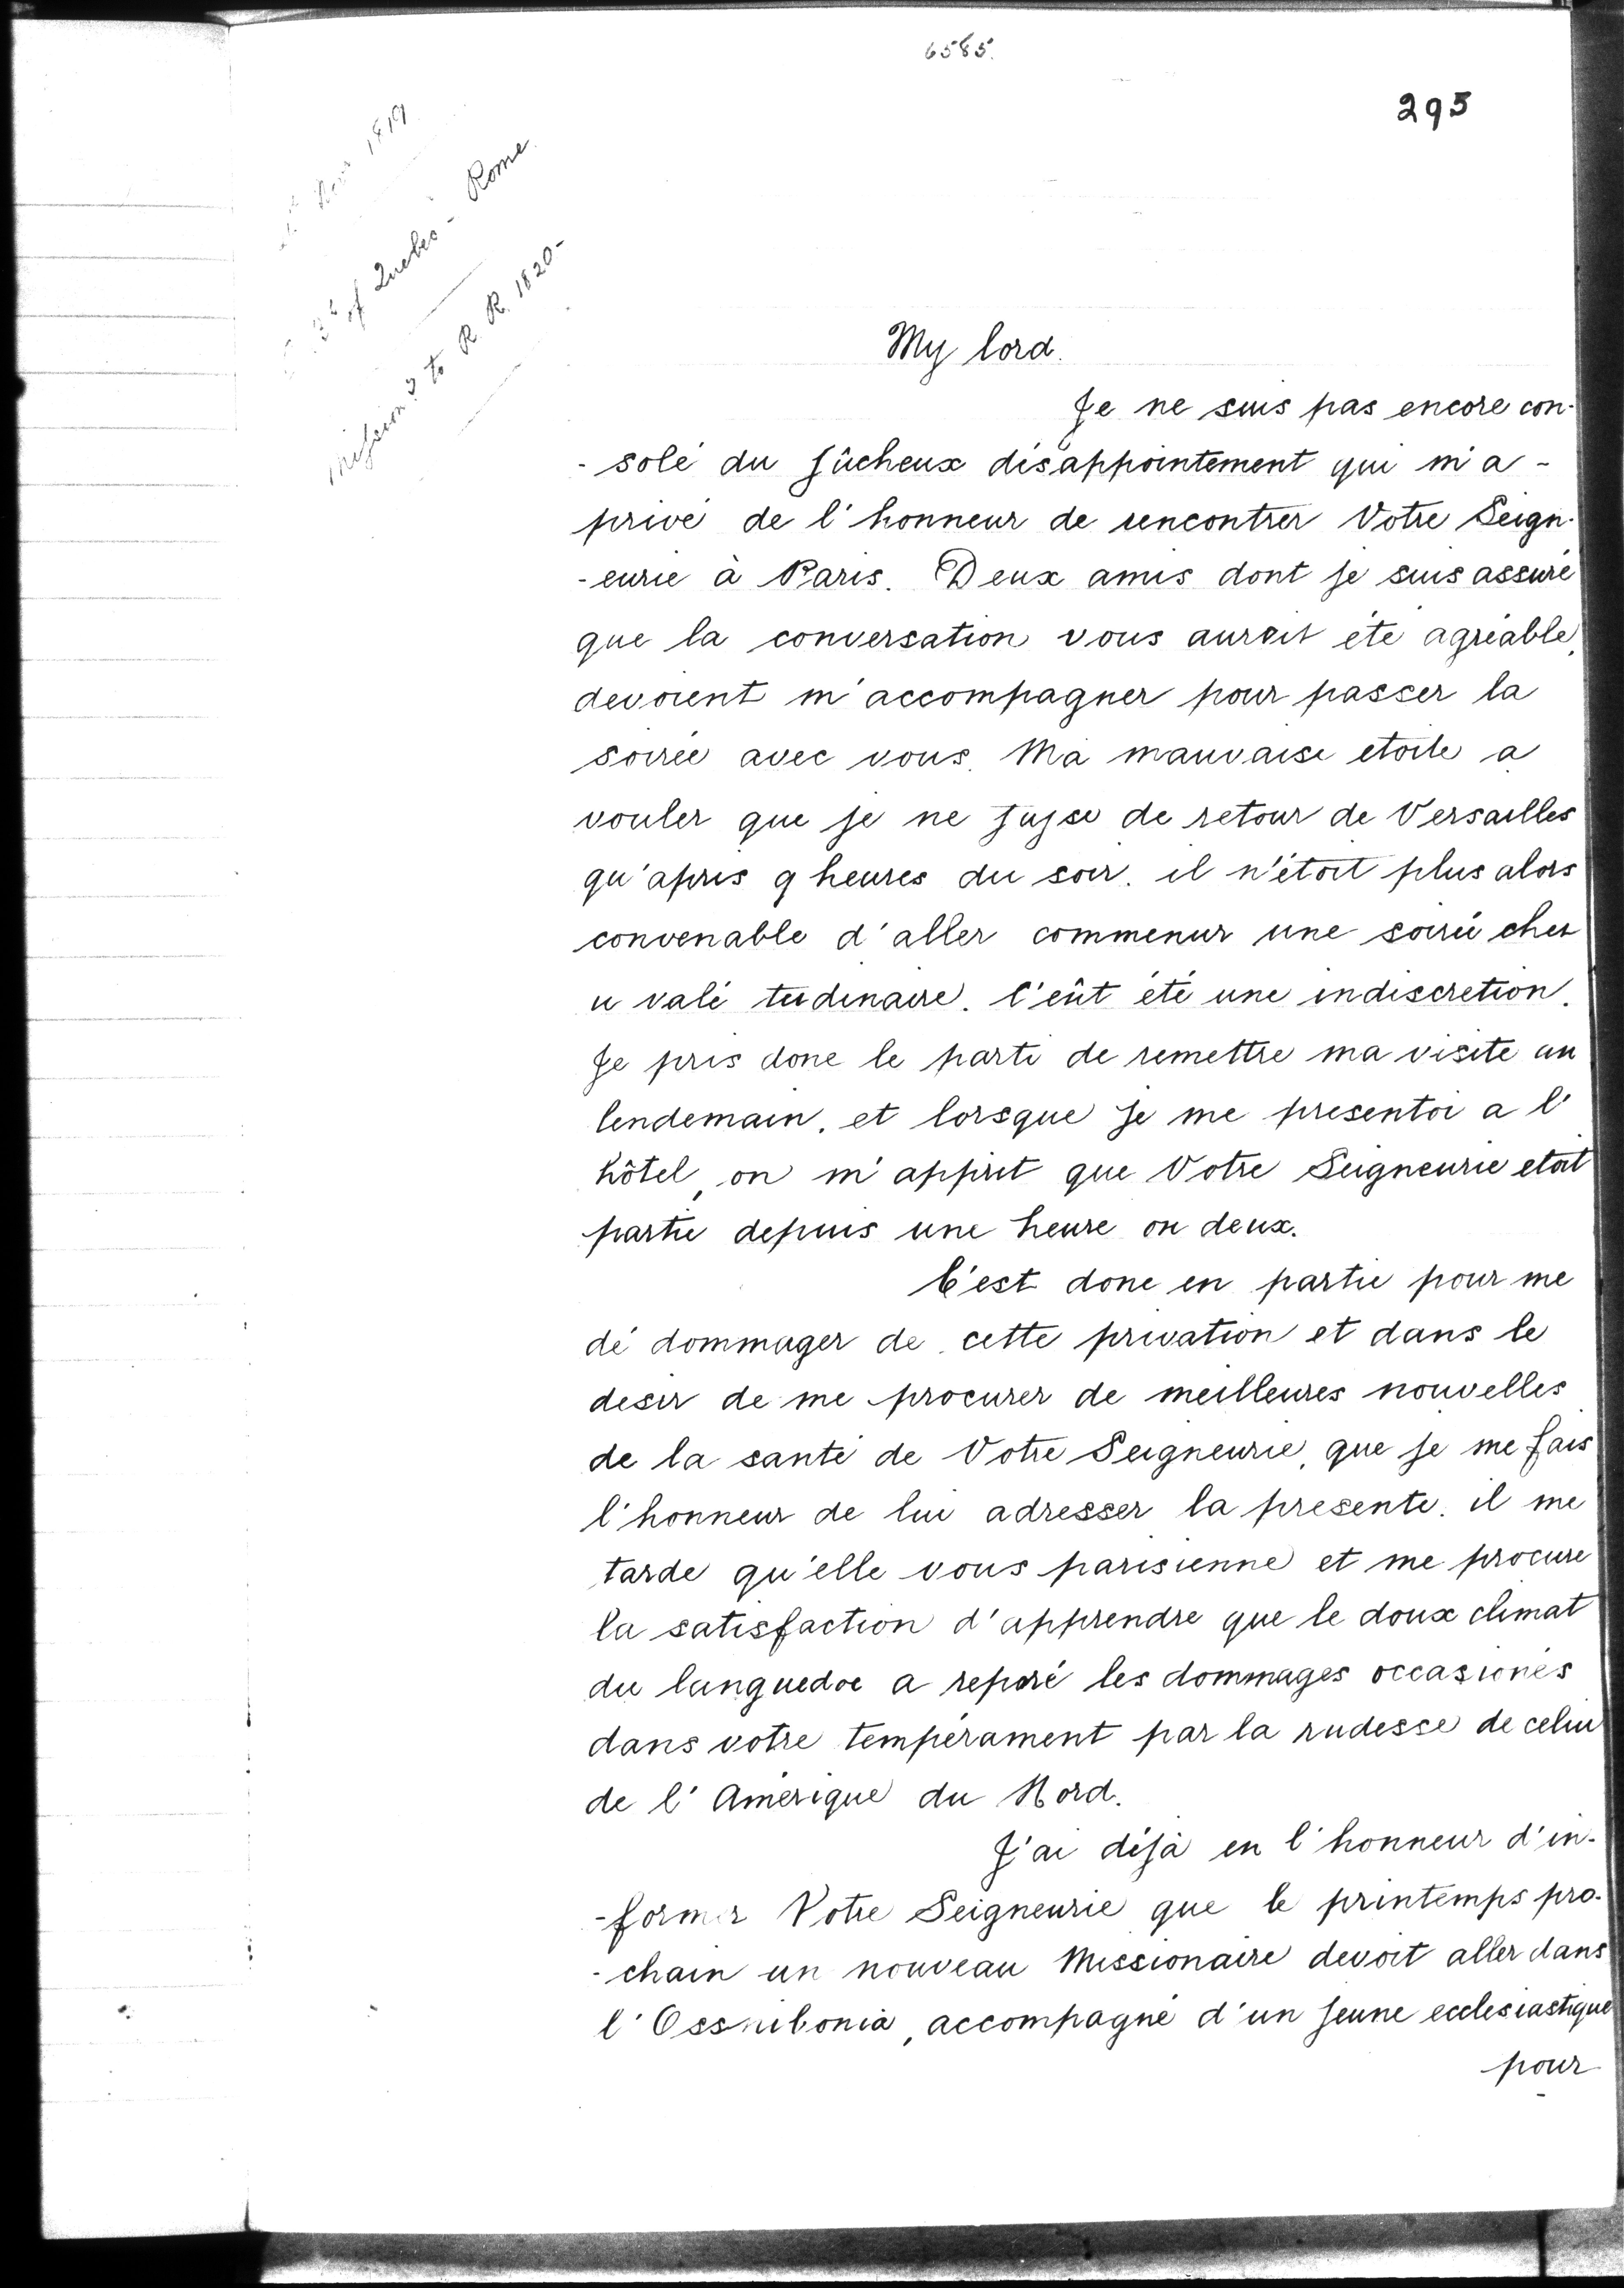 6585.
295
1819
Bp of Quebec - Rome.
Mission? to R. R. 1820 -
My lord.
Je ne suis pas encore con-
- solé du fûcheux désappointement qui m'a -
privé de l'honneur de rencontrer Votre Seign-
- eurie à Paris. Deux amis dont je suis assuré
que la conversation vous auroit été agréable,
devoient m'accompagner pour passer la
soirée avec vous. Ma mauvaise etoile a
vouler que je ne fusse de retour de Versailles
qu'apris 9 heures du soir. il n'étoit plus alors
convenable d'aller commenur une soirée chez
u valé tudinaire. C'eût été une indiscretion.
Je pris donc le parti de remettre ma visite au
lendemain. et lorsque je me presentoi a l'
hôtel, on m'apprit que Votre Seigneurie etoit
partie depuis une heure ou deux.
C'est donc en partie pour me
dé dommager de cette privation et dans le
desir de me procurer de meilleures nouvelles
de la santé de Votre Seigneurie, que je me fais
l'honneur de lui adresser la presente. il me
tarde qu'elle vous parisienne et me procure
la satisfaction d'apprendre que le doux climat
du languedoc a reparé les dommages occasionés
dans votre tempérament par la rudesse de celui
de l'Amérique du Nord.
J'ai déjà eu l'honneur d'in-
- former Votre Seigneurie que le printemps pro-
- chain un nouveau Missionaire devoit aller dans
l'Ossnibonia, accompagné d'un jeune ecclesiastique
pour